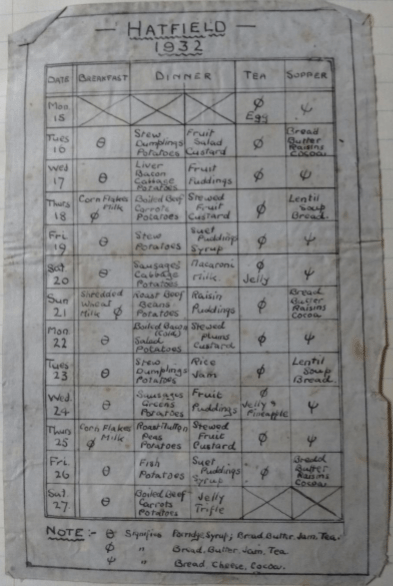 — HATFIELD —
1932
DATE BREAKFAST DINNER TEA SUPPER
Mon 15 φ Egg ψ
Tues 16 θ Stew Dumplings Potatoes Fruit Salad Custard φ Bread Butter Raisins Cocoa
Wed 17 θ Liver Bacon Cabbage Potatoes Fruit Puddings φ ψ
Thurs 18 Corn Flakes Milk φ Boiled Beef Carrots Potatoes Stewed Fruit Custard φ Lentil Soup Bread
Fri 19 θ Stew Potatoes Suet Puddings Syrup φ ψ
Sat. 20 θ Sausages Cabbage Potatoes Macaroni Milk φ Jelly ψ
Sun 21 Shredded Wheat Milk φ Roast Beef Beans Potatoes Raisin Puddings φ Bread Butter Raisins Cocoa
Mon. 22 θ Boiled (Cold) Salad Potatoes Stewed Plums Custard φ ψ
Tues 23 θ Stew Dumplings Potatoes Rice Jam φ Lentil Soup Bread
Wed. 24 θ Sausages Greens Potatoes Fruit Puddings φ Jelly & Pineapple ψ
Thurs 25 Corn Flakes φ Milk Roast Mutton Peas Potatoes Stewed Fruit Custard φ ψ
Fri. 26 θ Fish Potatoes Suet Puddings Syrup φ Bread Butter Raisins Cocoa
Sat. 27 θ Boiled Beef Carrots Potatoes Jelly Trifle
NOTE:- θ Signifies Porridge, Syrup, Bread. Butter. Jam. Tea.
φ " Bread. Butter. Jam. Tea
ψ " Bread Cheese, Cocoa.